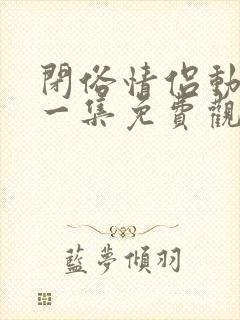 閉俗情侣動
一集免費觀
藍夢傾羽